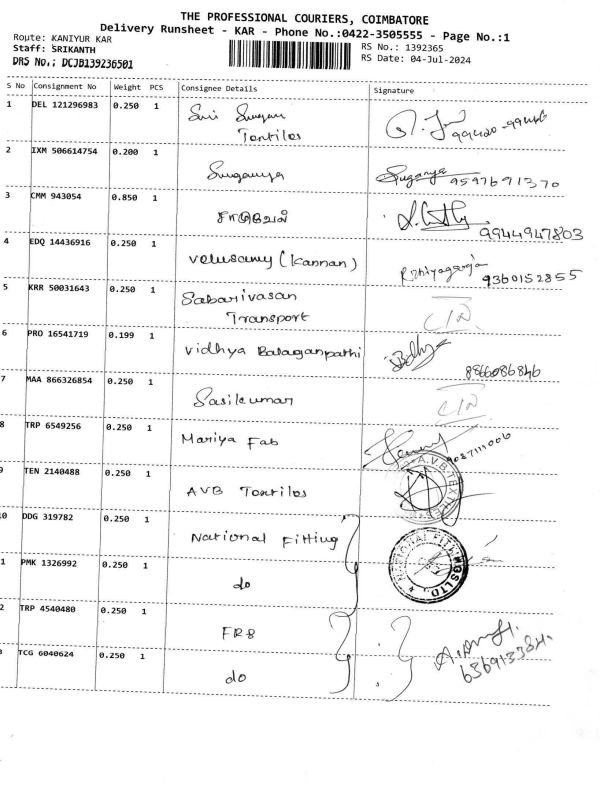 THE PROFESSIONAL COURIERS, COIMBATORE
Delivery Runsheet - KAR - Phone No.:0422-3505555 - Page No.:1
Route: KANIYUR KAR
RS No.: 1392365
Staff: SRIKANTH
RS Date: 04-Jul-2024
DRS No.: DCJB139236501
S No Consignment No Weight PCS Consignee Details Signature
1 DEL 121296983 0.250 1
Textiles
99420-99446
2 IXM 506614754 0.200 1 Suganya Suganya 9597691370
3 CMM 943054 0.850 1 9944947803
4 EDQ 14436916 0.250 1 Velusamy (Kannan) 9360152855
5 KRR 50031643 0.250 1 Sabarivasan
Transport
6 PRO 16541719 0.199 1 Vidhya Balaganpathi
8866086846
7 MAA 866326854 0.250 1 Sasikumar
8 TRP 6549256 0.250 1 Mariya Fab
9 TEN 2140488 0.250 1 AVB Textiles
A.V.B. TEXTILE
10 DDG 319782 0.250 1 National Fitting
NATIONAL FITTINGS LTD.,
1 PMK 1326992 0.250 1 do
2 TRP 4540480 0.250 1 FRB
3 TCG 6040624 0.250 1 do